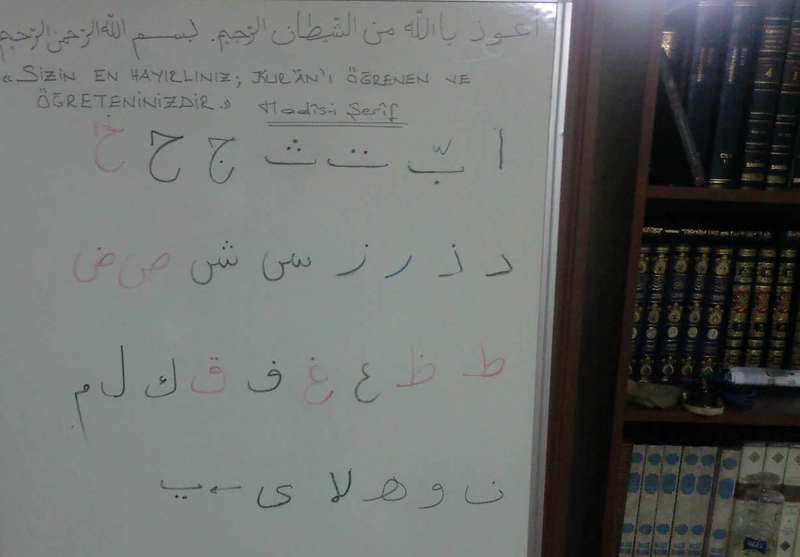 اعوذ باالله من الشيطان الرجيم. بسم الله الرحمن الرحيم
«SİZİN EN HAYIRLINIZ; KUR'ÂN'I ÖĞRENEN VE
ÖĞRETENİNİZDİR.» Hadîs-i Şerîf
ا بّ ت ث ج ح خ
د ذ ر ز س ش ص ض
ط ظ ع غ ف ق ك ل م
ن و ه لا ى ← ي